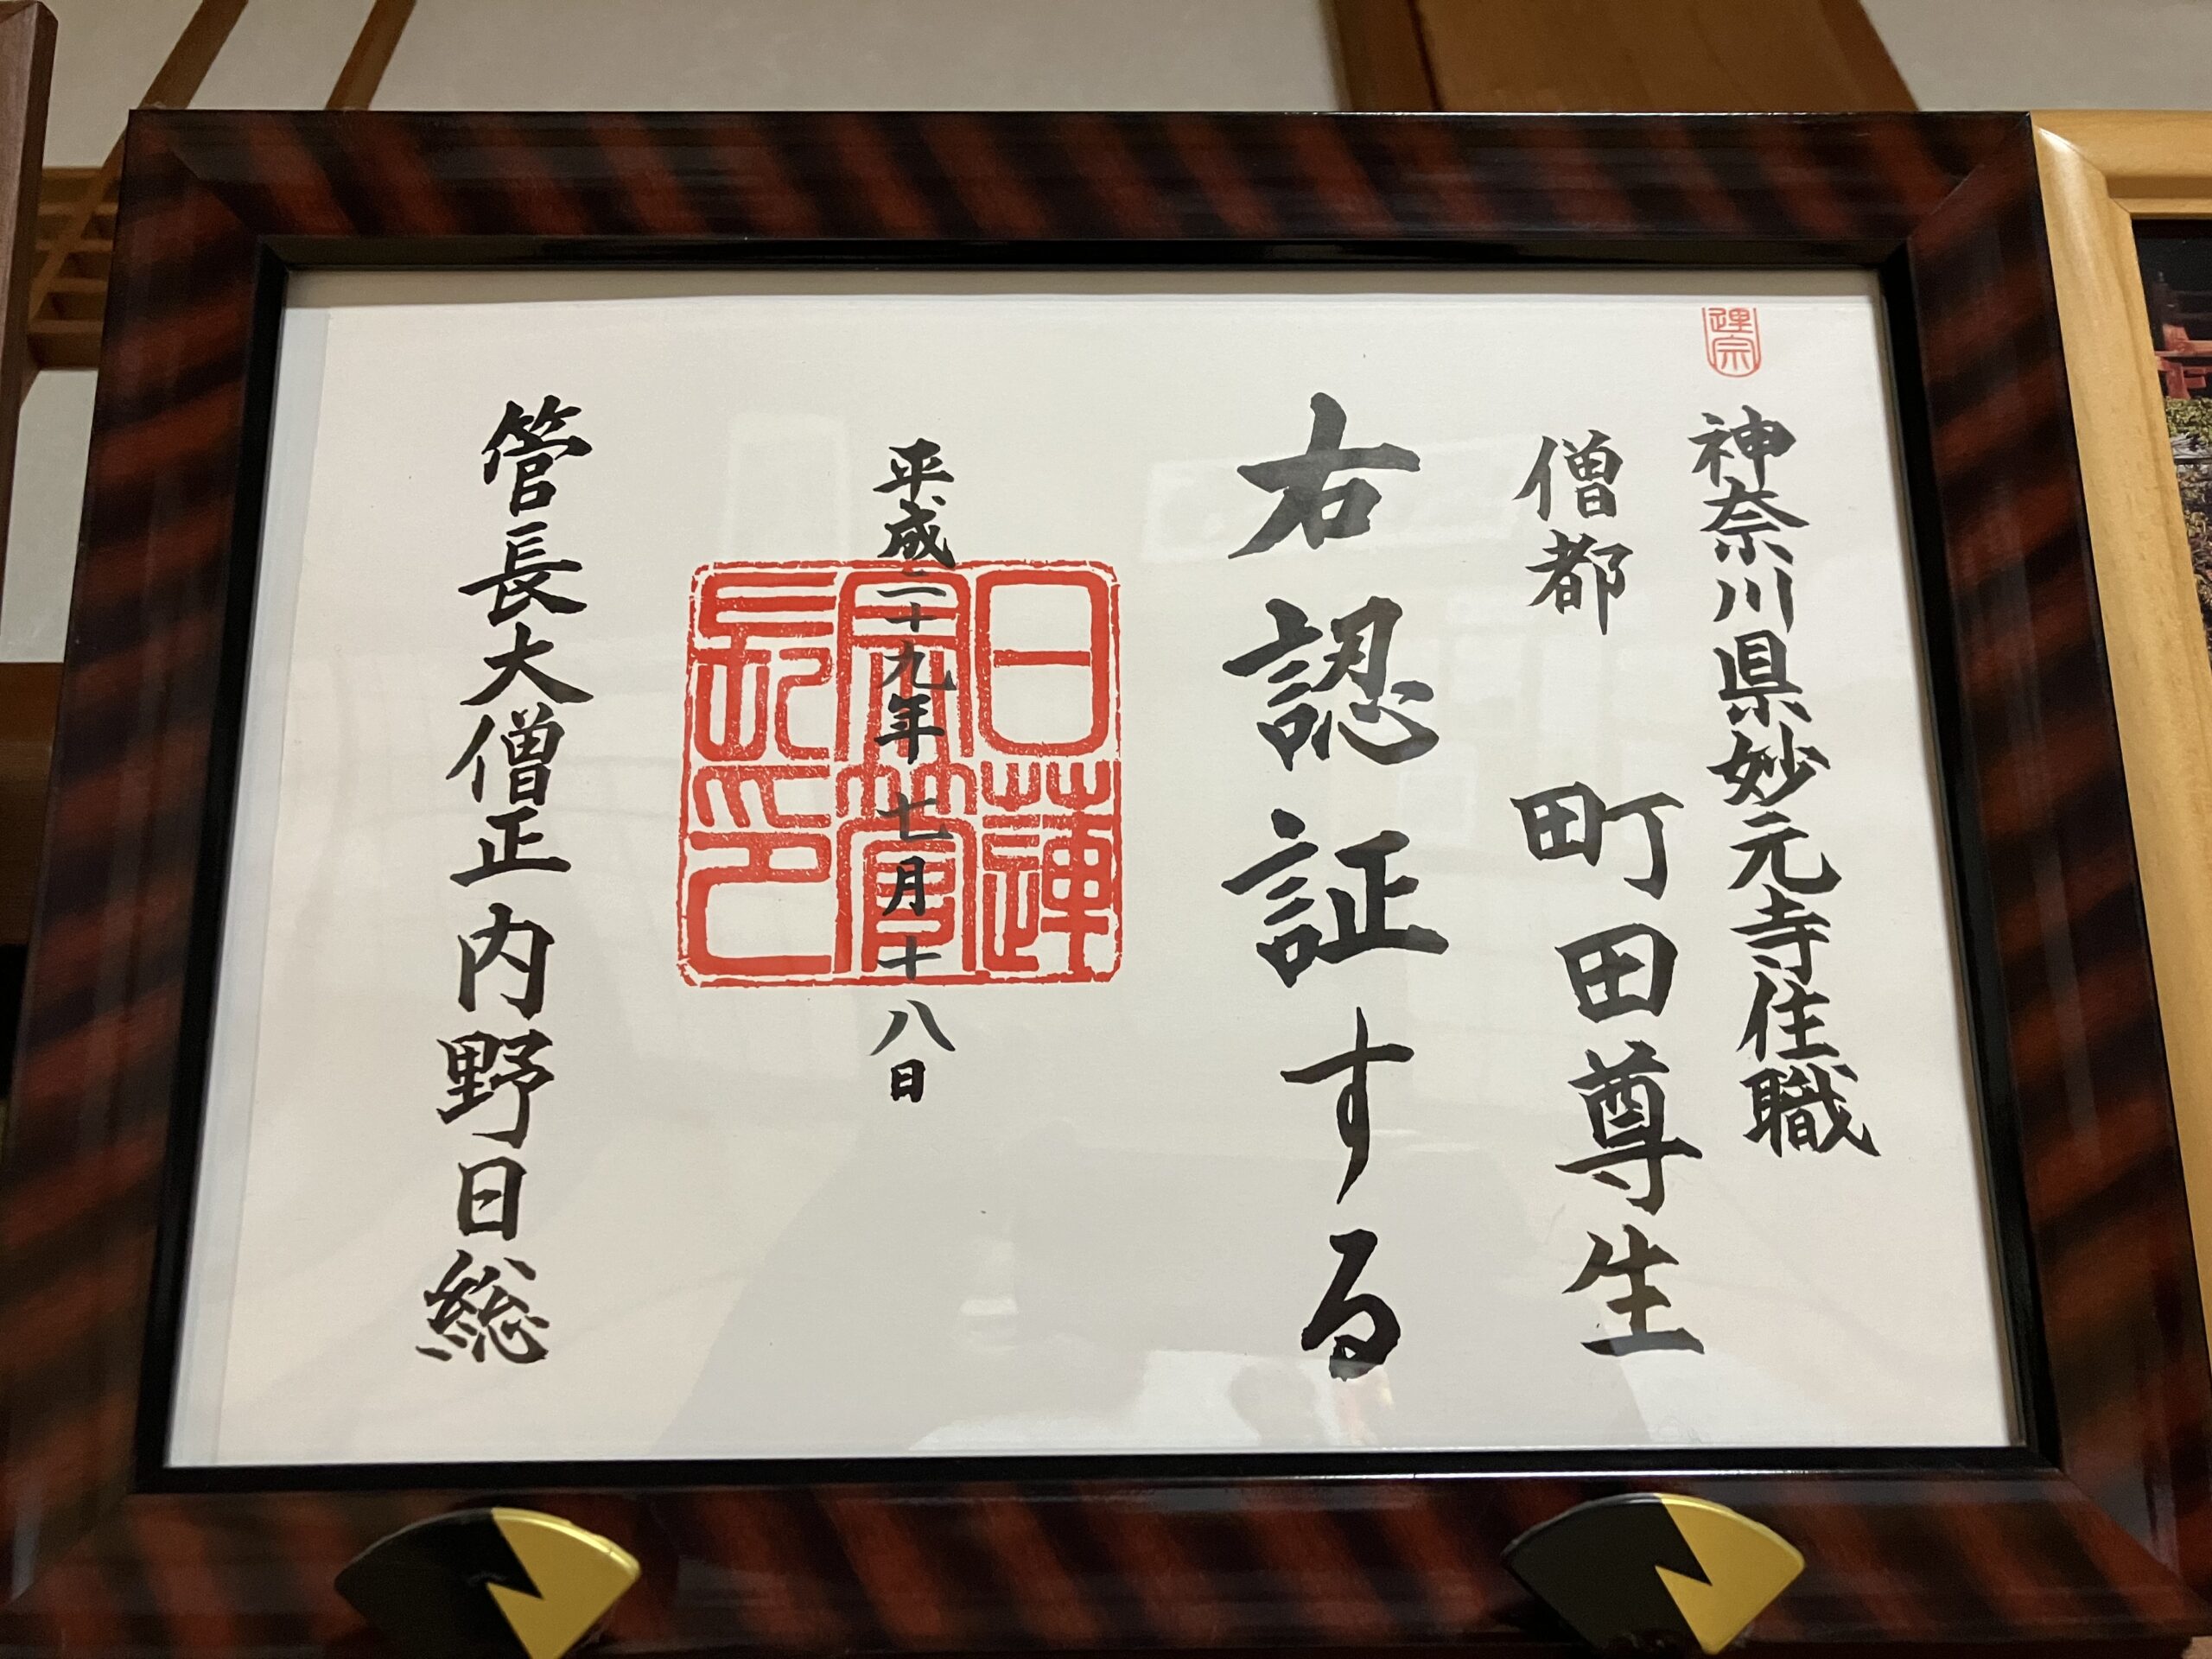 蓮宗
神奈川県妙元寺住職
僧都 町田尊生
右認証する
平成二十九年七月十八日
日蓮宗管長印
管長大僧正内野日総